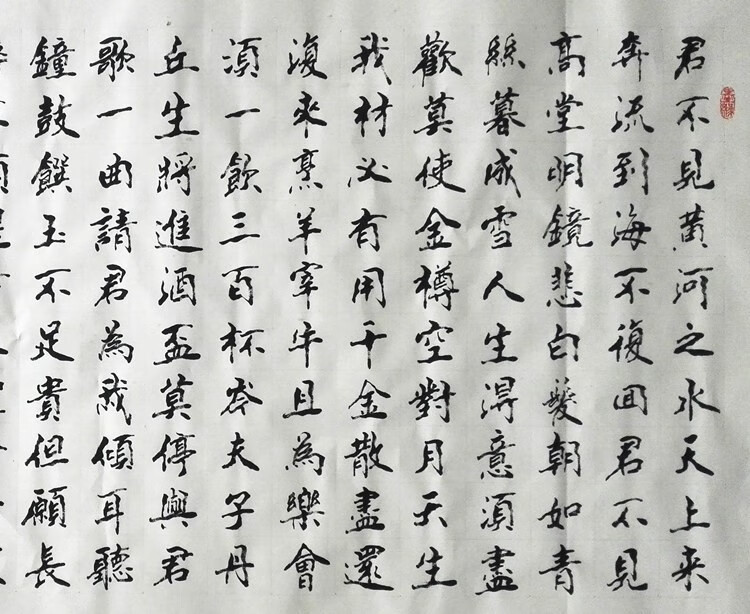 君不見黄河之水天上来
奔流到海不復回君不見
高堂明鏡悲白髮朝如青
絲暮成雪人生得意須盡
歡莫使金樽空對月天生
我材必有用千金散盡還
復来烹羊宰牛且為樂會
須一飲三百杯岑夫子丹
丘生將進酒盃莫停與君
歌一曲請君為我傾耳聽
鐘鼓饌玉不足貴但願長